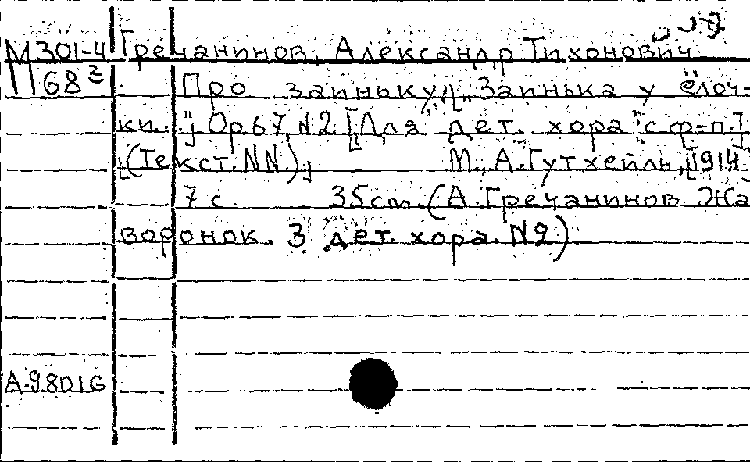 М301-4 Гречанинов, Александр Тихонович
П68² Про заиньку [„Заинька у ёлоч-
ки..."] Op.67, N2. [Для дет. хора с ф-п.]
[(Текст. NN).] М., А. Гутхейль, [1914
7 с. 35 см. (А. Гречанинов. Жа-
воронок. 3 дет. хора. N2)
А-98016